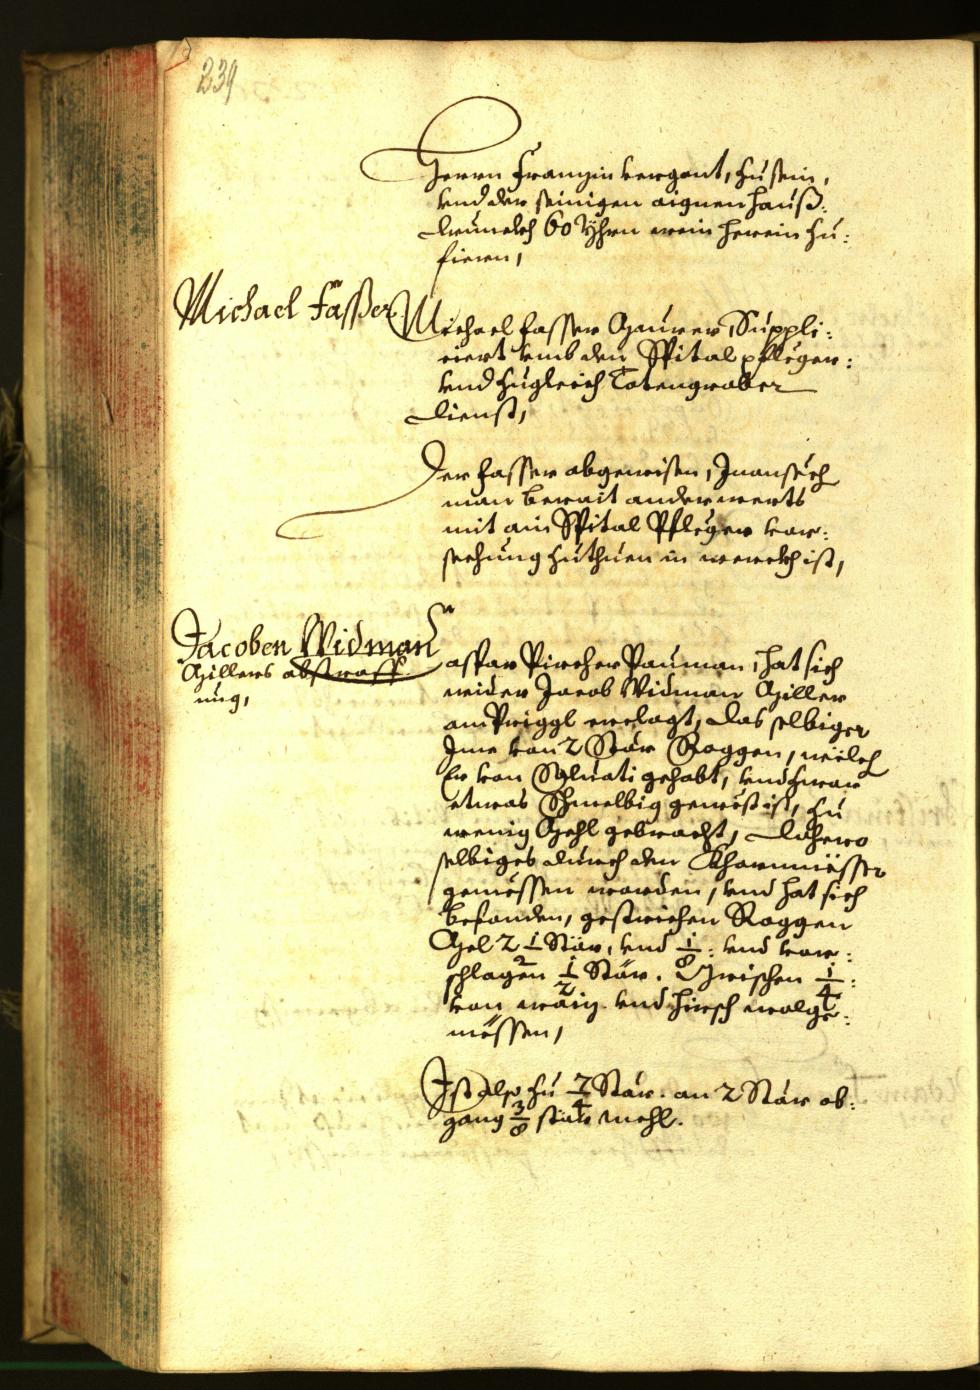 239
Herrn Franzin vergont, zu sein,
und der seinigen aignen Hauß:
trunckh 60 Yhrn wein herein zu:
fieren,
Michael Fasser
Michael Fasser Maurer, Suppli:
ciert umb den Spital pfleger:
und zugleich Totengraber
dienst,
Der Fasser abgewisen, Inansech
man berait anderwerts
mit ain Spital Pfleger vor:
sechung zuthuen in werckh ist,
Jacoben Widman
Millers abstraff
ung,
Caspar Pircher Pauman, hat sich
wider Jacob Widman Miller
am Priggl erclagt, das selbiger
Ime von 2 Stär Roggen, welch
Er von gehabt, und zwar
etwas Schwelbig gewest ist, zu
wenig Mehl gebracht, dahero
selbiges durch den Khornmësser
gemëssen worden, und hat sich
befonden, gestrichen Roggen
Mel 2 1/2 Stär, und 1/8: und vor:
schlagen 1/2 Stär. Grischen 1/4:
von und Hirsch wolge:
mëssen,
Ist also zu Stär. an 2 Stär ab:
gang 3/8 stär mehl.